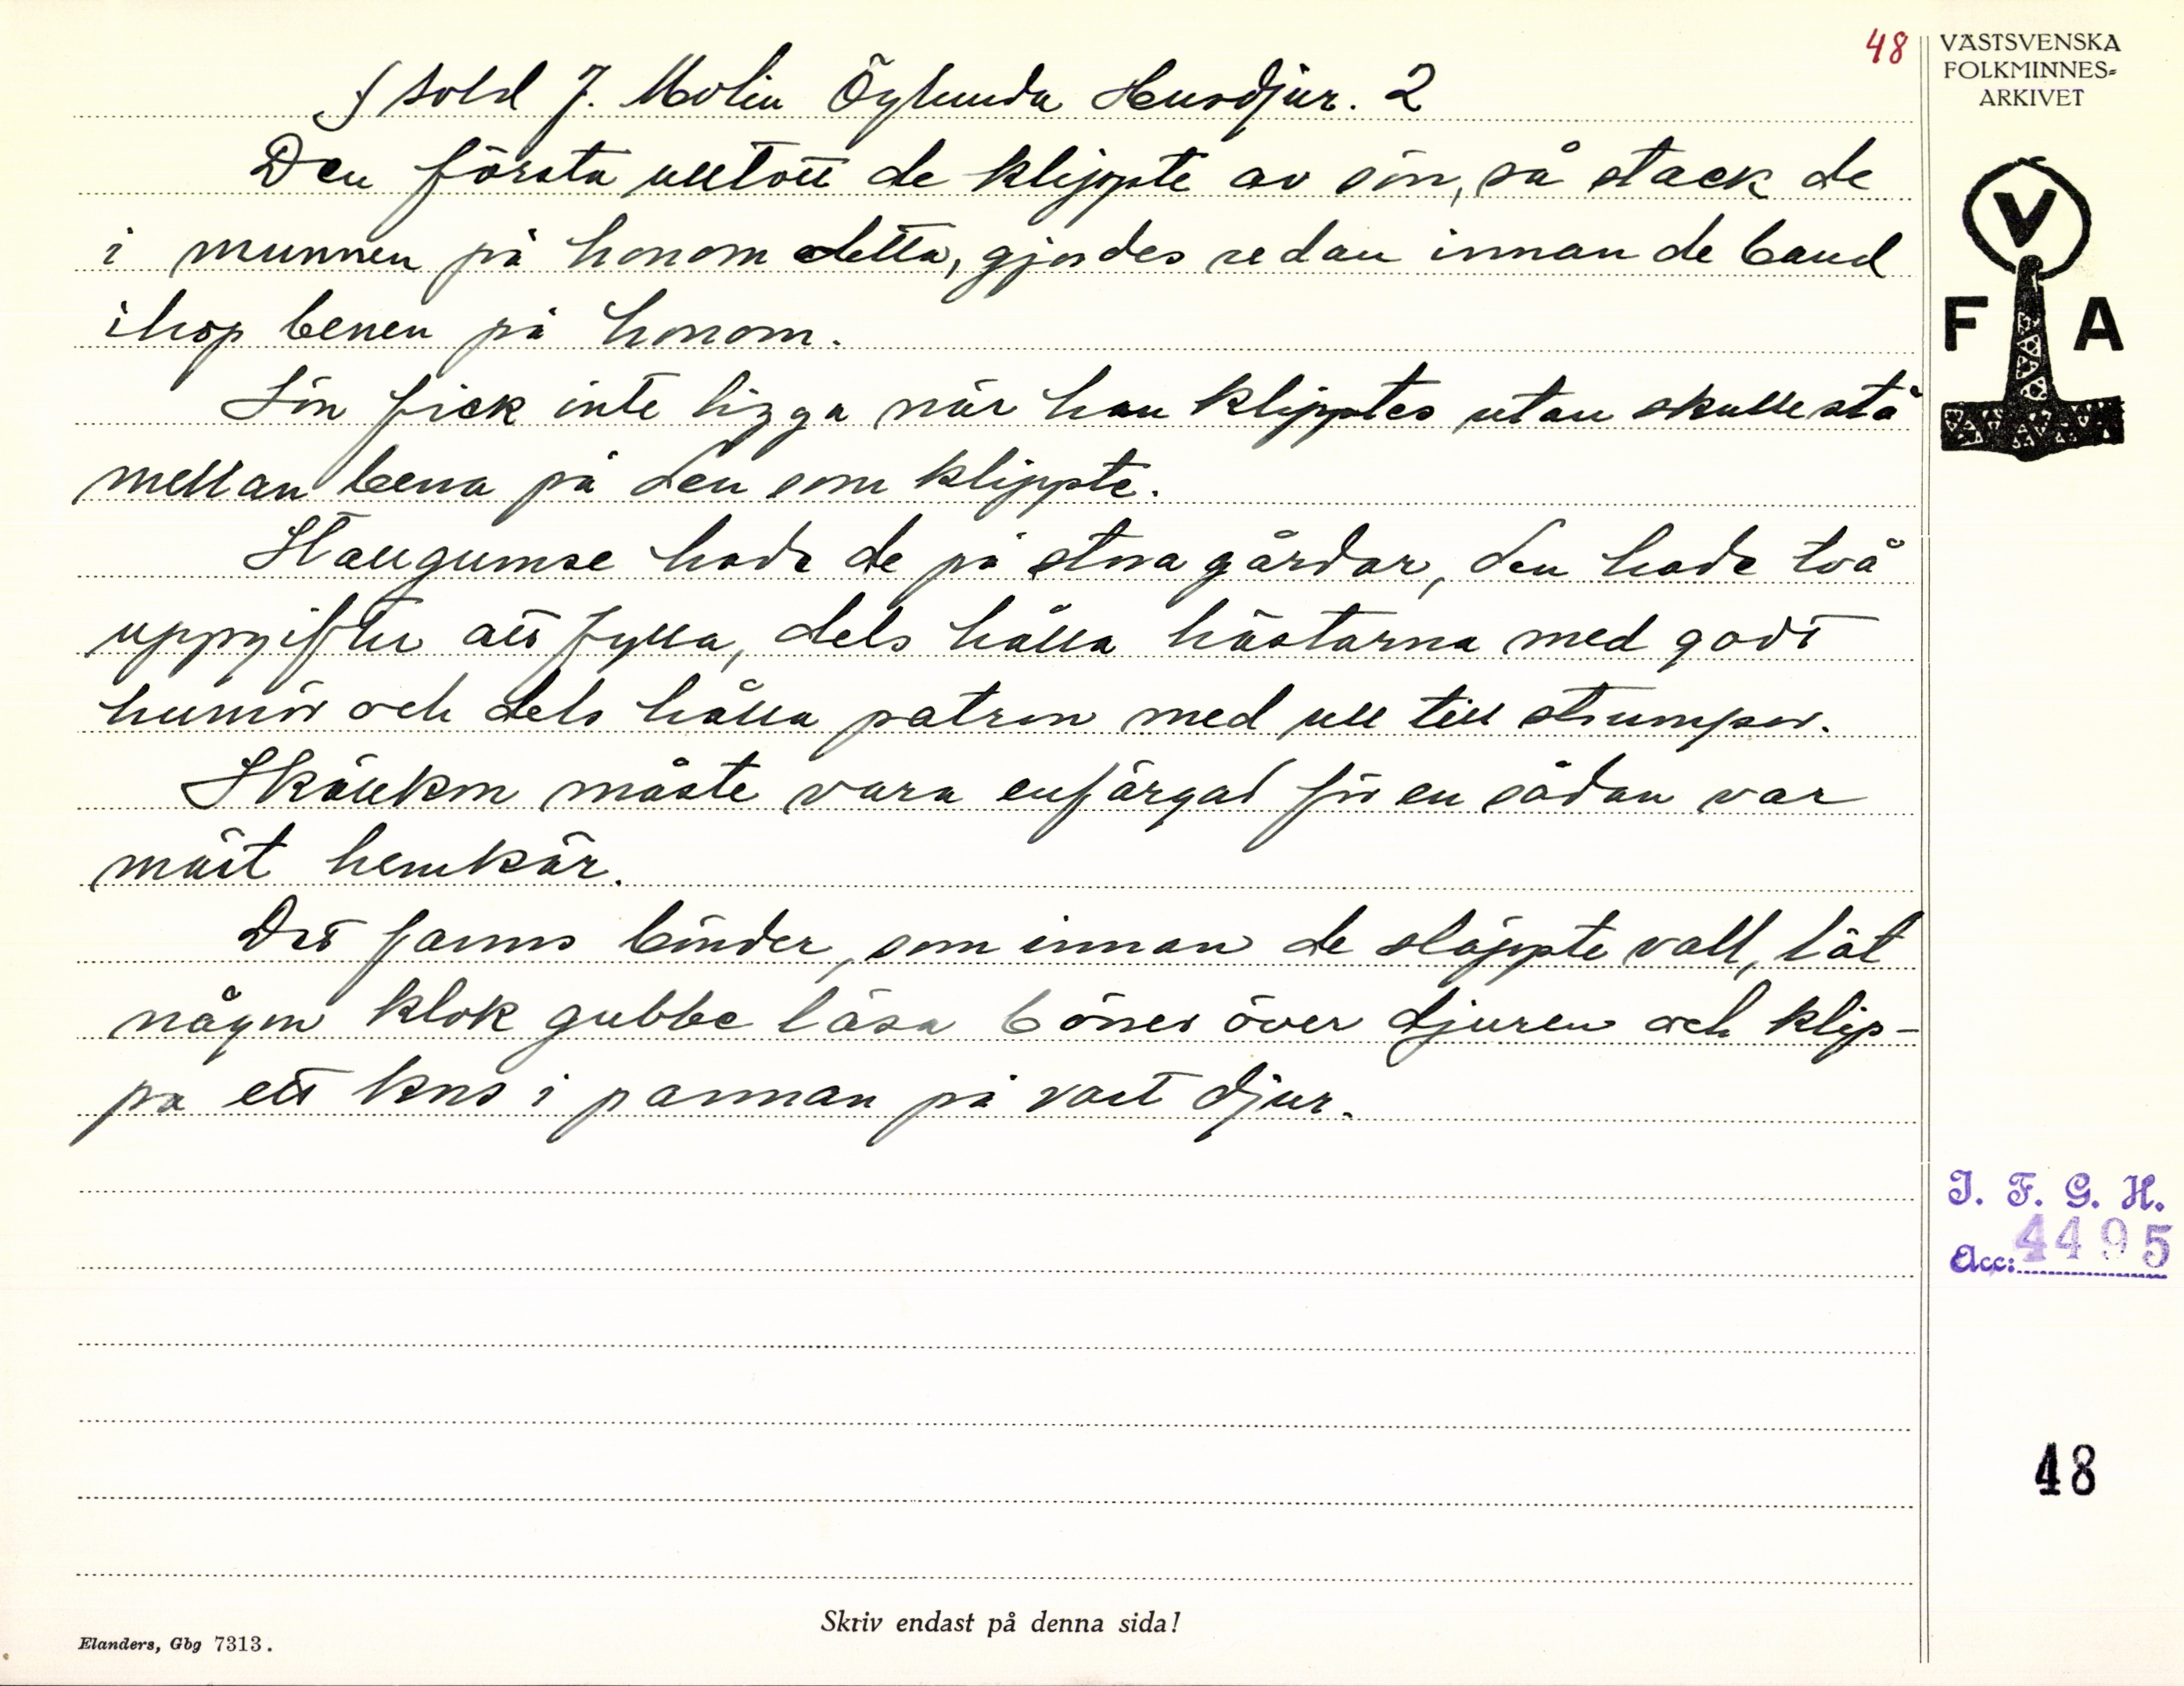 48
VÄSTSVENSKA
FOLKMINNES=
ARKIVET
f sold J. Molin Öglunda Husdjur. 2
Den första ulltott de klippte av sön, så stack de
i munnen på honom detta, gjordes redan innan de band
ihop benen på honom.
Sön fick inte ligga när han klipptes utan skulle stå
mellan bena på den som klippte.
Stallgumse hade de på stora gårdar, den hade två
uppgifter att fylla, dels hålla hästarna med godt
humör och dels hålla patron med ull till strumpor.
Skällkon måste vara enfärgad för en sådan var
mäst hemkär.
Det fanns bönder, som innan de släppte vall, lät
någon klok gubbe läsa böner över djuren och klip-
pa ett kors i pannan på vart djur.
V
F A
I. F. G. H.
Acc: 4495
48
Skriv endast på denna sida!
Elanders, Gbg 7313.